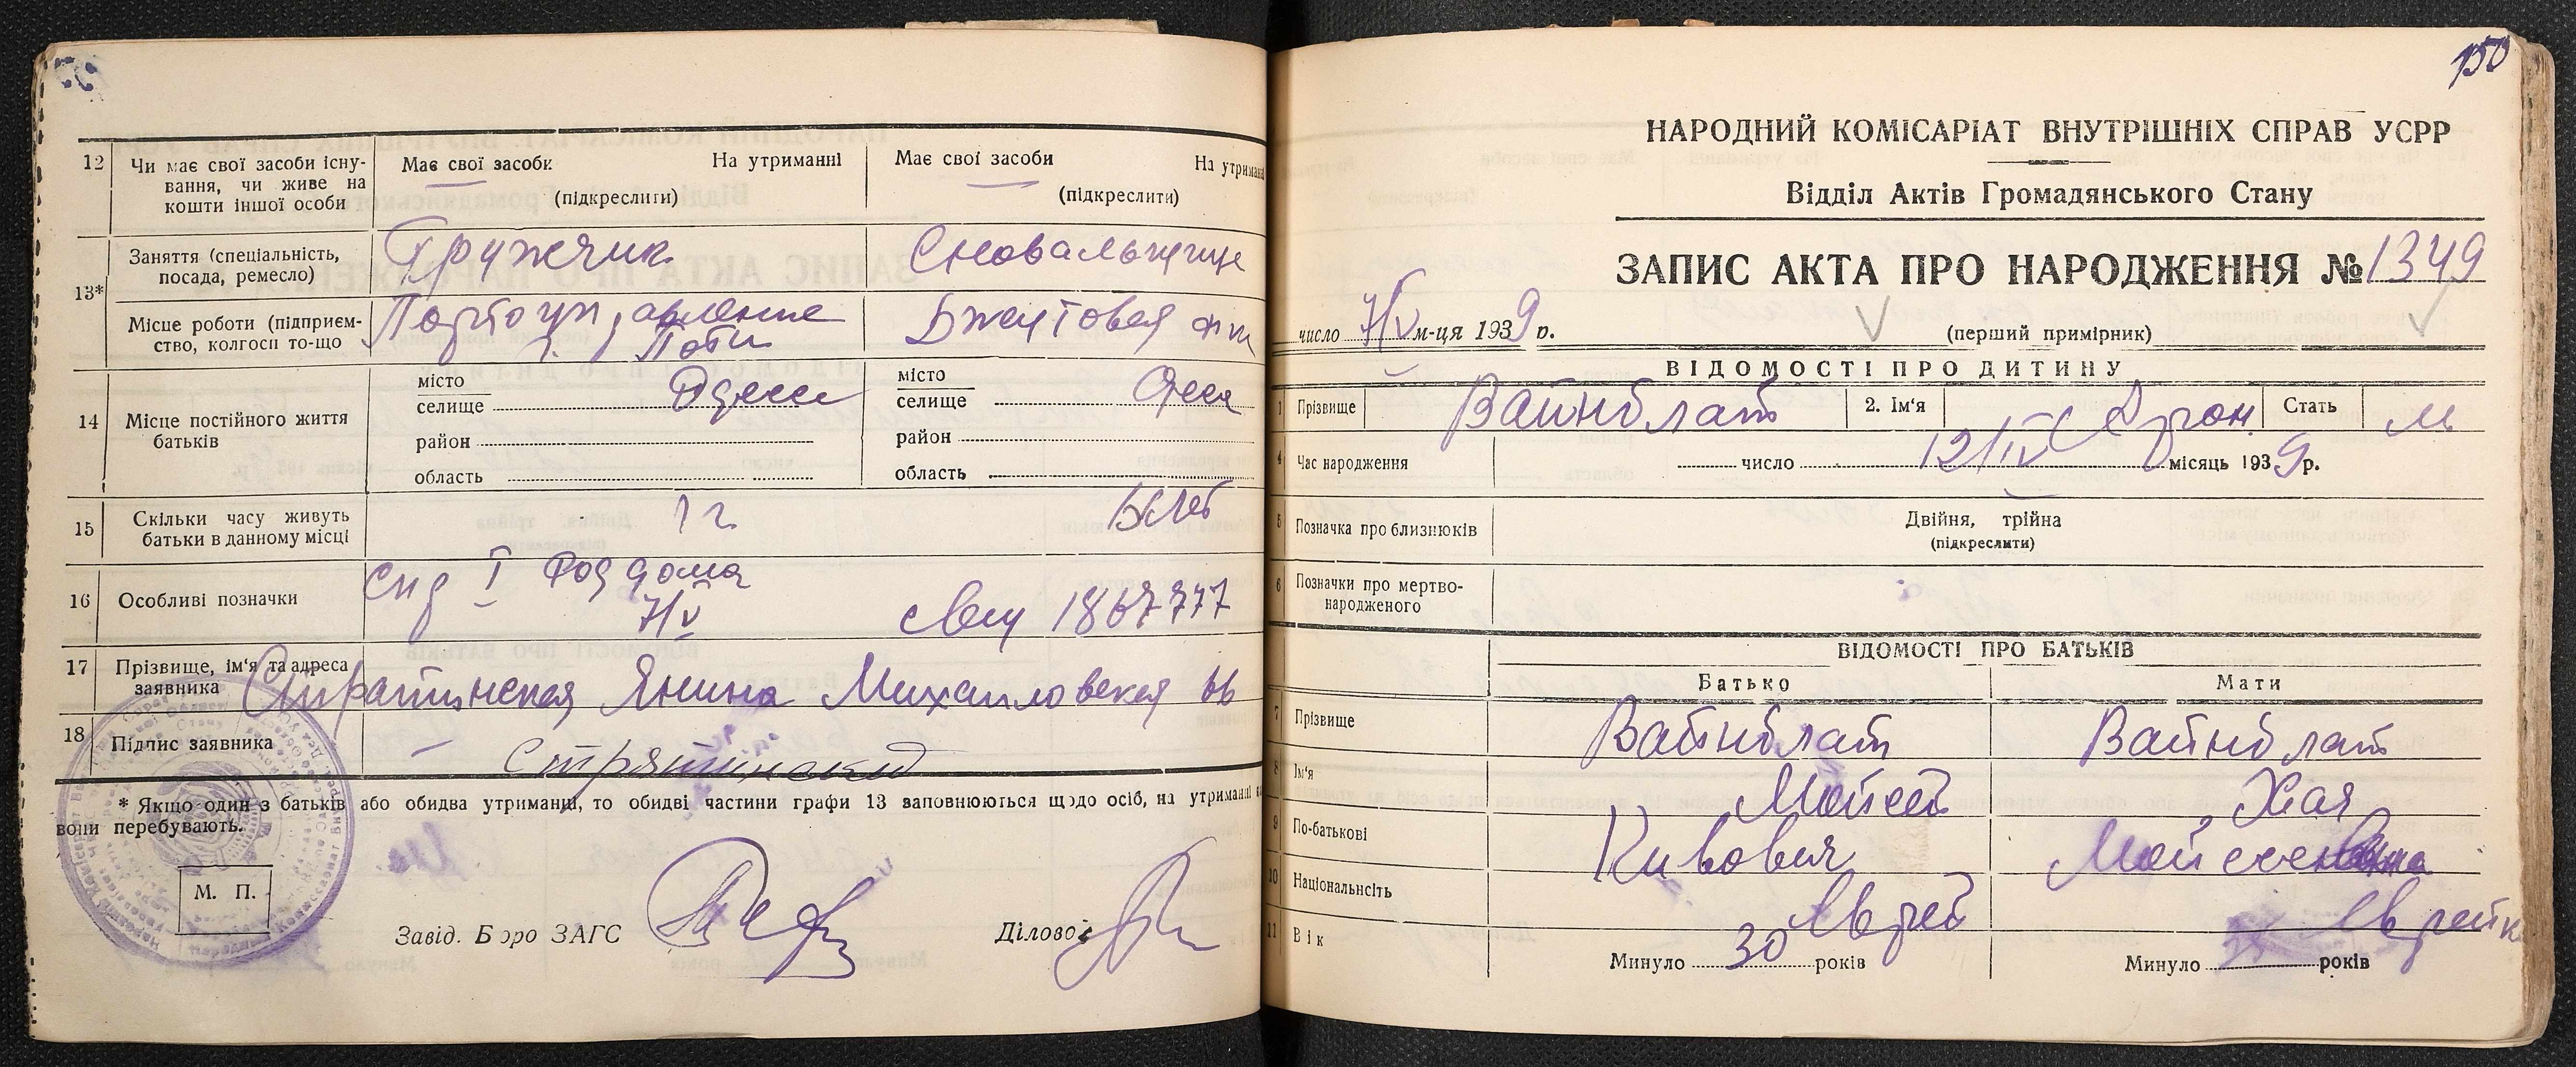 12 Чи має свої засоби існу-
вання, чи живе на
кошти іншої особи
Має свої засоби На утриманні
(підкреслити)
Має свої засоби На утриманні
(підкреслити)
13*
Заняття (спеціальність,
посада, ремесло)
Грузчик
Сновальщица
Місце роботи (підприєм-
ство, колгосп то-що
Портоуправление
г. Поти
Джутовая ф-ка
14 Місце постійного життя
батьків
місто
селище Одесса
район
область
місто
селище Одесса
район
область
15 Скільки часу живуть
батьки в данному місці
1 г
16 Особливі позначки
I Род дома
7/V
1867777
17 Прізвище, ім'я та адреса
заявника
Янина Михайловская 66
18 Підпис заявника
* Якщо один з батьків або обидва утриманці, то обидві частини графи 13 заповнюються щодо осіб, на утриманні
вони перебувають.
М. П.
Завід. Бюро ЗАГС
Діловод
150
НАРОДНИЙ КОМІСАРІАТ ВНУТРІШНІХ СПРАВ УСРР
Відділ Актів Громадянського Стану
ЗАПИС АКТА ПРО НАРОДЖЕННЯ № 1349
число 7/V м-ця 1939 р.
(перший примірник)
ВІДОМОСТІ ПРО ДИТИНУ
1 Прізвище Вайнблат 2. Ім'я Стать м
4 Час народження число 12/IV місяць 1939 р.
5 Позначка про близнюків
Двійня, трійна
(підкреслити)
6 Позначки про мертво-
народженого
ВІДОМОСТІ ПРО БАТЬКІВ
Батько Мати
7 Прізвище Вайнблат Вайнблат
8 Ім'я Мойсей Хая
9 По-батькові Кивович Мойсеевна
10 Національнсіть Еврей Еврейка
11 Вік
Минуло 30 років
Минуло років